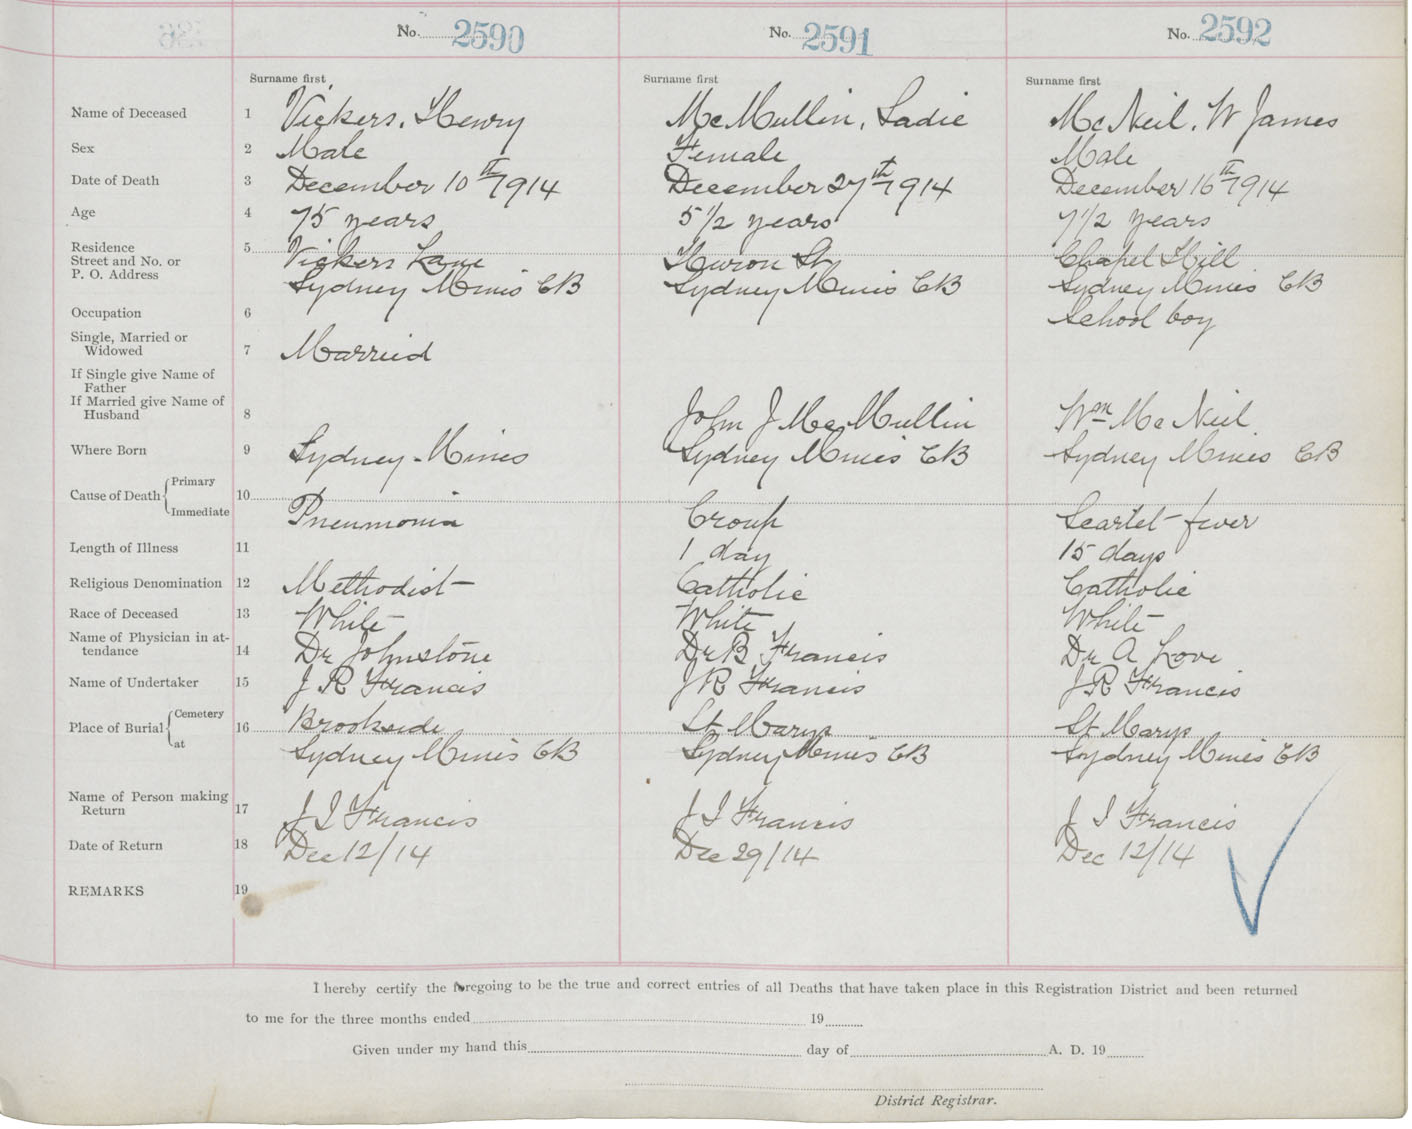 No. 2590 No. 2591 No. 2592
Surname first Surname first Surname first
Name of Deceased 1 Vickers, Henry McMullin, Sadie McNeil, W James
Sex 2 Male Female Male
Date of Death 3 December 10th 1914 December 27th 1914 December 16th 1914
Age 4 75 years 5 1/2 years 7 1/2 years
Residence 5
Street and No. or Vickers Lane Huron St Chapel Hill
P. O. Address Sydney Mines CB Sydney Mines CB Sydney Mines CB
Occupation 6 School boy
Single, Married or
Widowed 7 Married
If Single give Name of
Father
If Married give Name of
Husband 8 John J McMullin Wm McNeil
Where Born 9 Sydney-Mines Sydney Mines CB Sydney Mines CB
Primary
Cause of Death 10
Immediate Pneumonia Croup Scarlet-fever
Length of Illness 11 1 day 15 days
Religious Denomination 12 Methodist Catholic Catholic
Race of Deceased 13 White White White
Name of Physician in at-
tendance 14 Dr Johnstone Dr B Francis Dr A Love
Name of Undertaker 15 J R Francis J R Francis J R Francis
Cemetery
Place of Burial 16 Brookside St Marys St Marys
at Sydney Mines CB Sydney Mines CB Sydney Mines CB
Name of Person making
Return 17 J I Francis J I Francis J I Francis
Date of Return 18 Dec 12/14 Dec 29/14 Dec 12/14
REMARKS 19
I hereby certify the foregoing to be the true and correct entries of all Deaths that have taken place in this Registration District and been returned
to me for the three months ended 19
Given under my hand this day of A. D. 19
District Registrar.